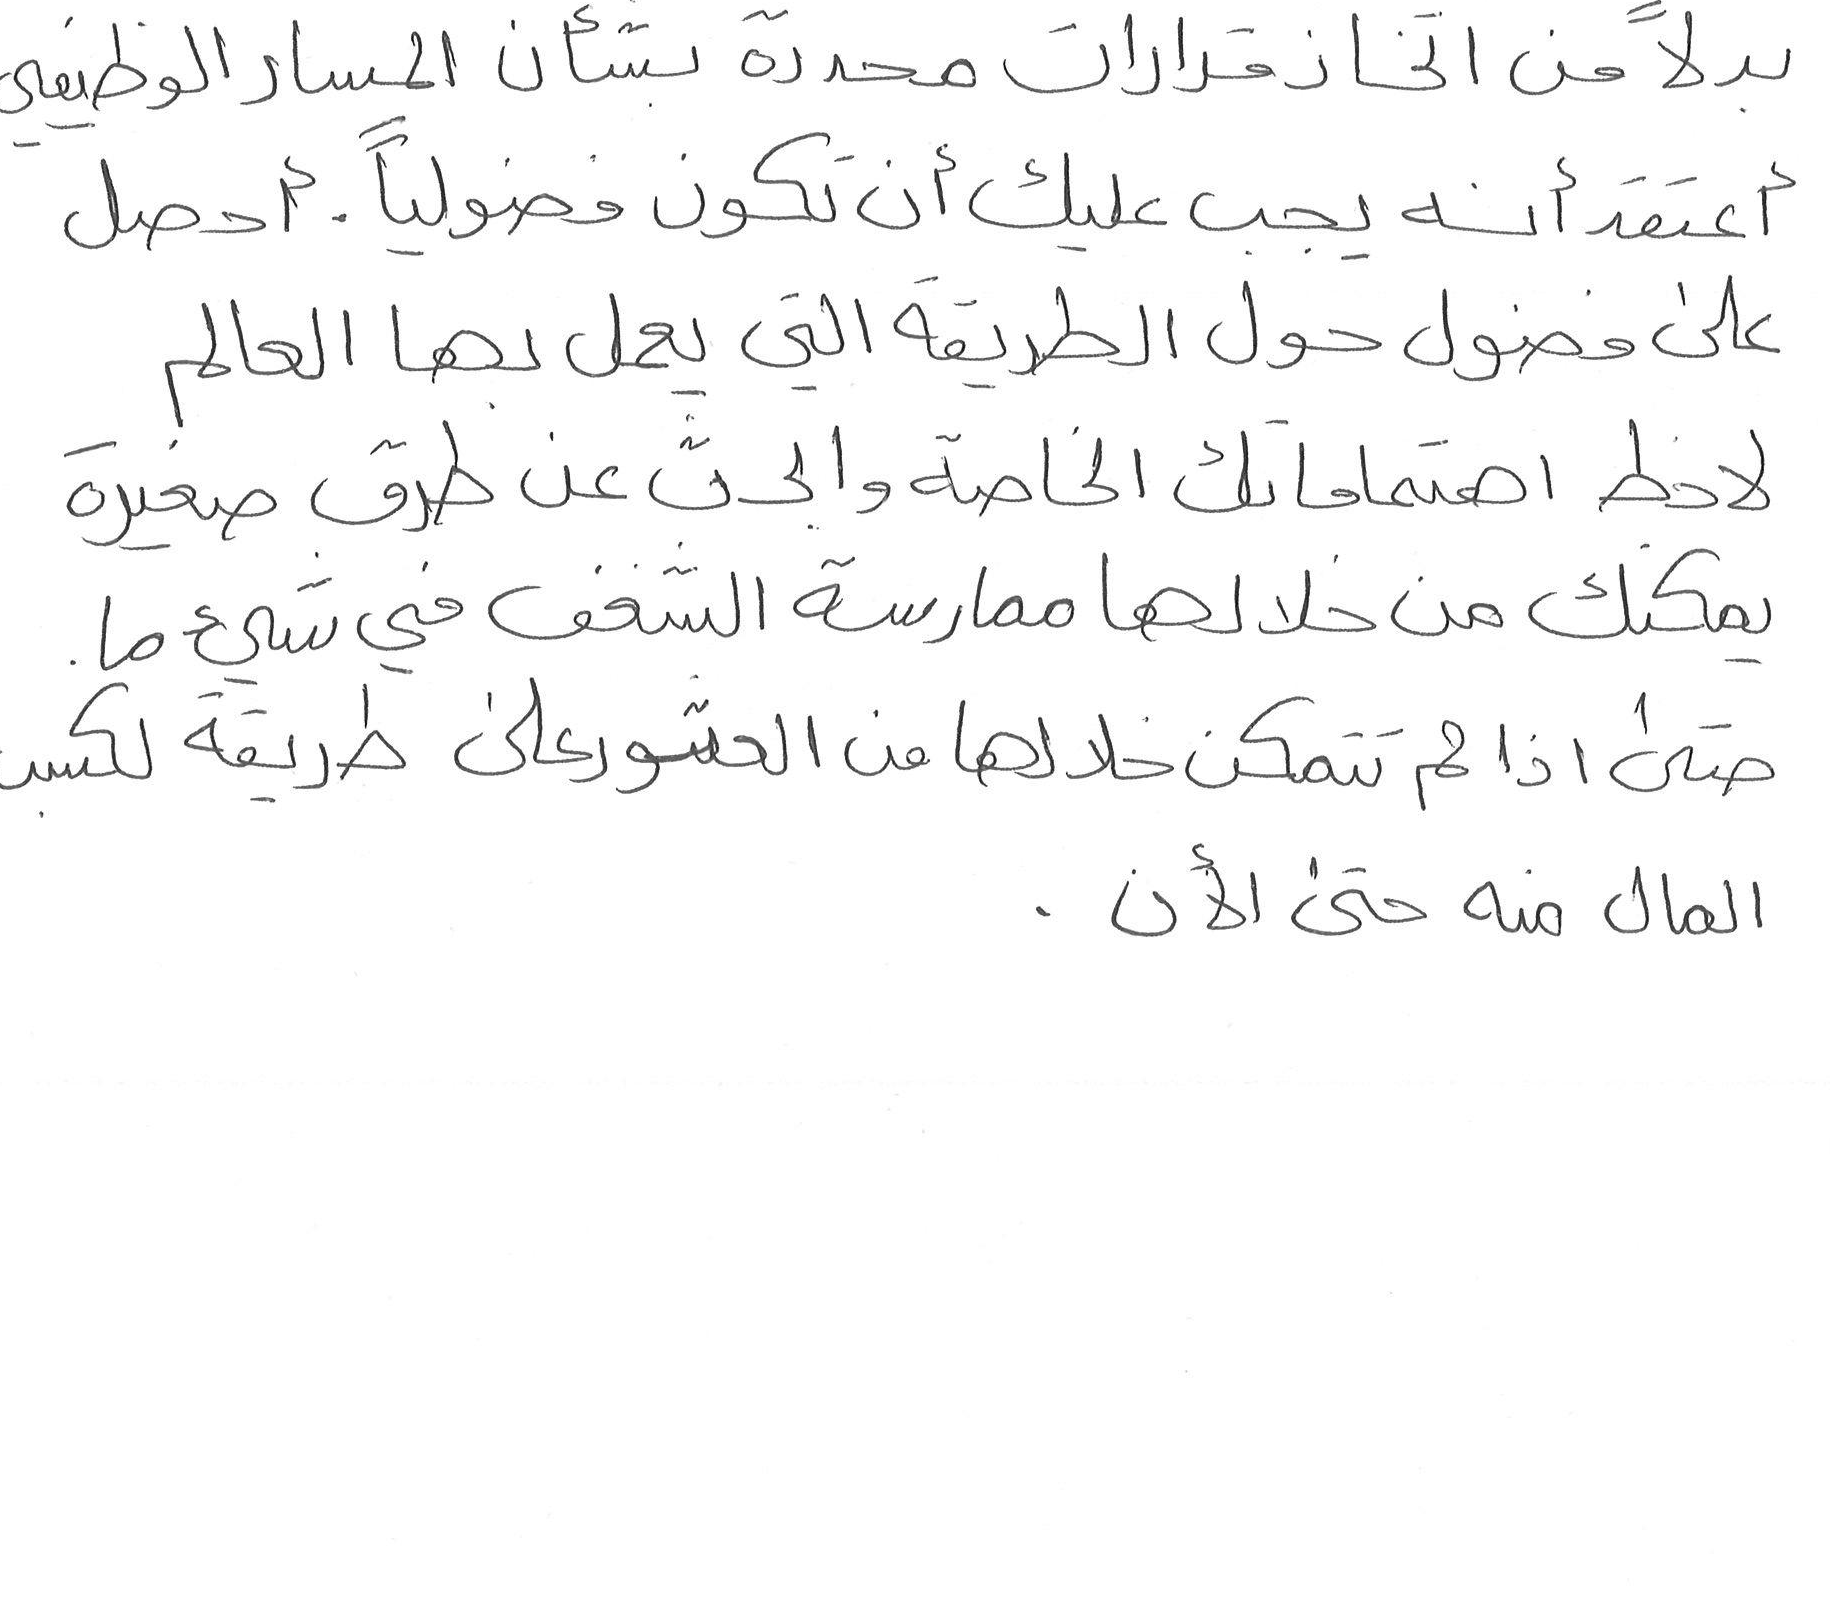 بدلاً من اتخاذ قرارات محددة بشأن المسار الوظيفي
أعتقد أنه يجب عليك أن تكون فضولياً. أحصل
على فضول حول الطريقة التي يعمل بها العالم
لاحظ اهتماماتك الخاصة وابحث عن طرق صغيرة
يمكنك من خلالها ممارسة الشغف في شيئ ما.
حتى اذا لم تتمكن خلالها من العثور على طريقة لكسب
المال منه حتى الأن .